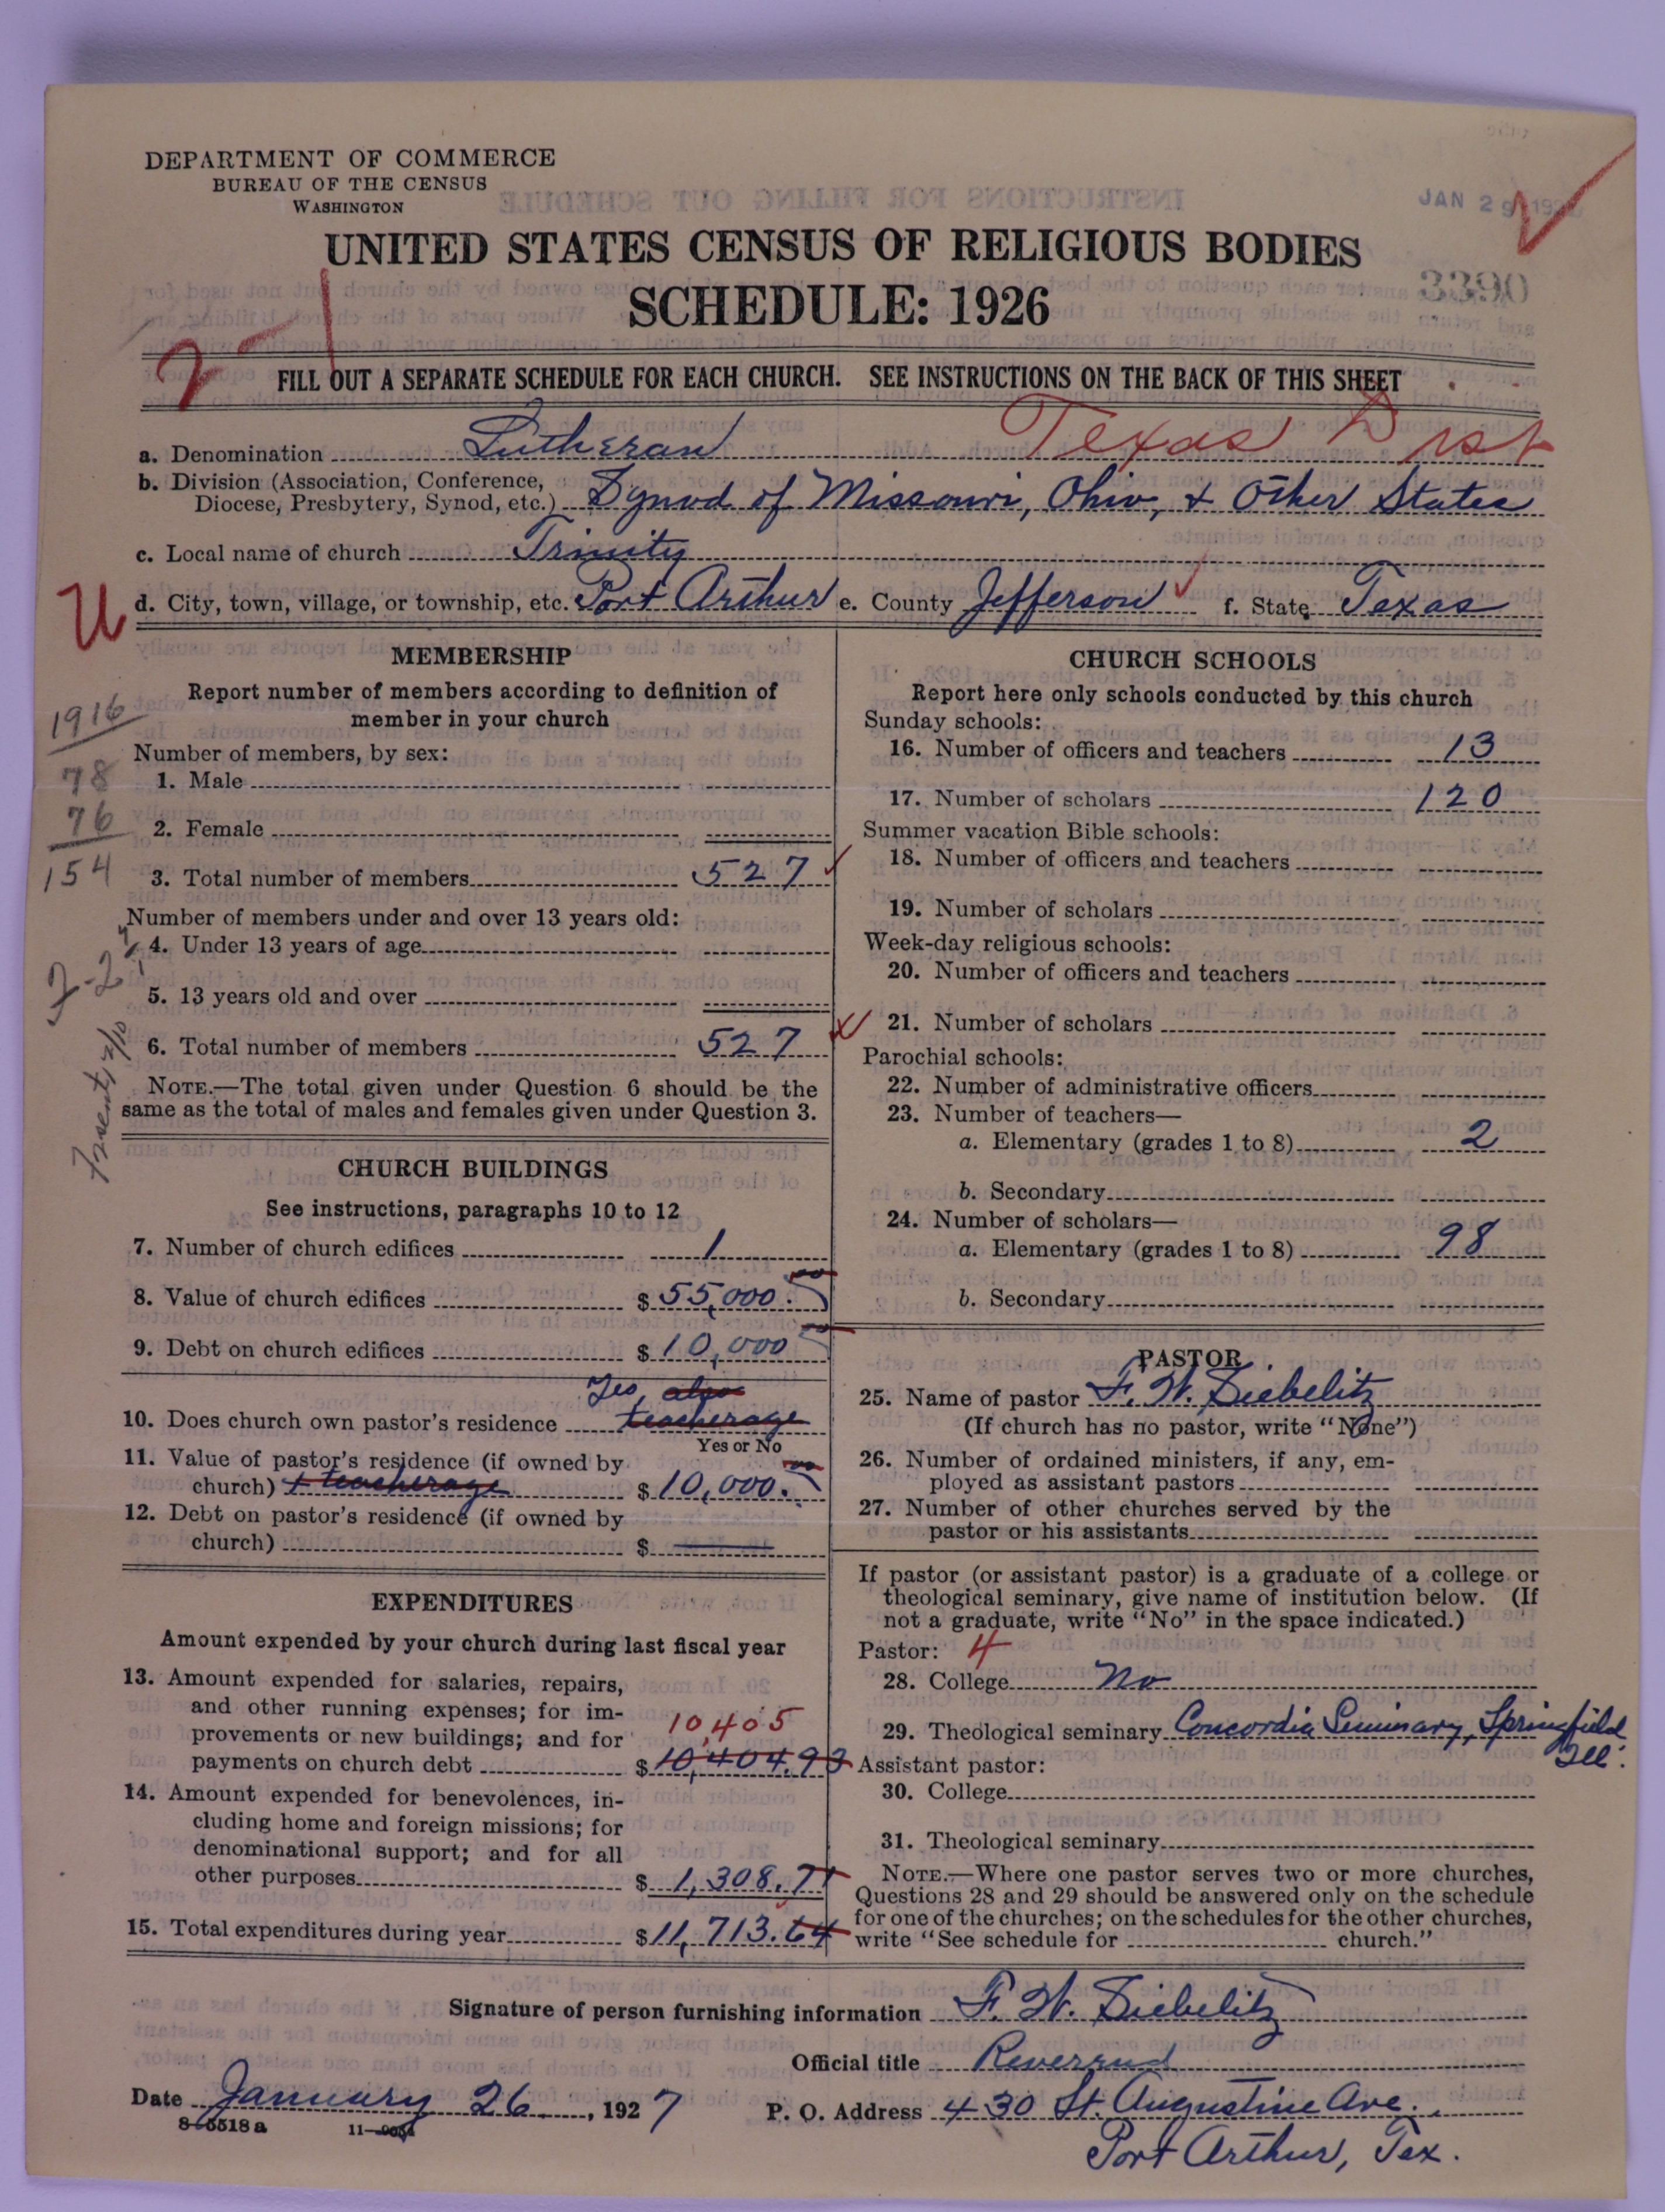 DEPARTMENT OF COMMERCE
BUREAU OF THE CENSUS
WASHINGTON
JAN 29 192
UNITED STATES CENSUS OF RELIGIOUS BODIES
SCHEDULE: 1926
3390
FILL OUT A SEPARATE SCHEDULE FOR EACH CHURCH. SEE INSTRUCTIONS ON THE BACK OF THIS SHEET
a. Denomination Lutheran Texas Dist
b. Division (Association, Conference,
Diocese, Presbytery, Synod, etc.) Synod of Missouri, Ohio, & Other States
c. Local name of church Trinity
U d. City, town, village, or township, etc. Port Arthur e. County Jefferson f. State Texas
MEMBERSHIP
Report number of members according to definition of
member in your church
1916
Number of members, by sex:
78 1. Male
76 2. Female
154 3. Total number of members 527
Number of members under and over 13 years old:
4. Under 13 years of age
5. 13 years old and over
6. Total number of members 527
NOTE.—The total given under Question 6 should be the
same as the total of males and females given under Question 3.
CHURCH BUILDINGS
See instructions, paragraphs 10 to 12
7. Number of church edifices 1
8. Value of church edifices $ 55,000.
9. Debt on church edifices $ 10,000
Yes, also
10. Does church own pastor's residence teacherage
Yes or No
11. Value of pastor's residence (if owned by
church) + teacherage $ 10,000.
12. Debt on pastor's residence (if owned by
church) $
EXPENDITURES
Amount expended by your church during last fiscal year
13. Amount expended for salaries, repairs,
and other running expenses; for im-
provements or new buildings; and for 10,405
payments on church debt $ 10,404.93
14. Amount expended for benevolences, in-
cluding home and foreign missions; for
denominational support; and for all
other purposes $ 1,308.71
15. Total expenditures during year $ 11,713.64
CHURCH SCHOOLS
Report here only schools conducted by this church
Sunday schools:
16. Number of officers and teachers 13
17. Number of scholars 120
Summer vacation Bible schools:
18. Number of officers and teachers
19. Number of scholars
Week-day religious schools:
20. Number of officers and teachers
21. Number of scholars
Parochial schools:
22. Number of administrative officers
23. Number of teachers—
a. Elementary (grades 1 to 8) 2
b. Secondary
24. Number of scholars—
a. Elementary (grades 1 to 8) 98
b. Secondary
PASTOR
25. Name of pastor F. W. Siebelitz
(If church has no pastor, write "None")
26. Number of ordained ministers, if any, em-
ployed as assistant pastors
27. Number of other churches served by the
pastor or his assistants
If pastor (or assistant pastor) is a graduate of a college or
theological seminary, give name of institution below. (If
not a graduate, write "No" in the space indicated.)
Pastor: 4
28. College No
29. Theological seminary Concordia Seminary, Springfield
Ill.
Assistant pastor:
30. College
31. Theological seminary
NOTE.—Where one pastor serves two or more churches,
Questions 28 and 29 should be answered only on the schedule
for one of the churches; on the schedules for the other churches,
write "See schedule for church."
Signature of person furnishing information F. W. Siebelitz
Official title Reverend
Date January 26, 1927 P. O. Address 430 St. Augustine Ave.
8-5518a 11- Port Arthur, Tex.